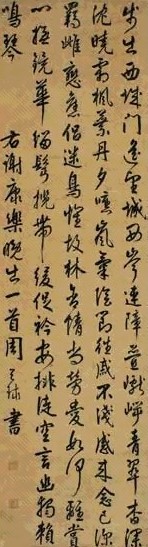 步出西城門遙望城西岑連障疊巘崿青翠杳深
沈曉霜楓葉丹夕曛嵐氣陰節往慼不淺感來念已深
羈雌戀舊侶迷鳥懷故林含情尚勞愛如何離賞
心撫鏡華緇鬢攬帶緩促衿安排徒空言幽獨賴
鳴琴 右謝康樂晚出一首周天球書